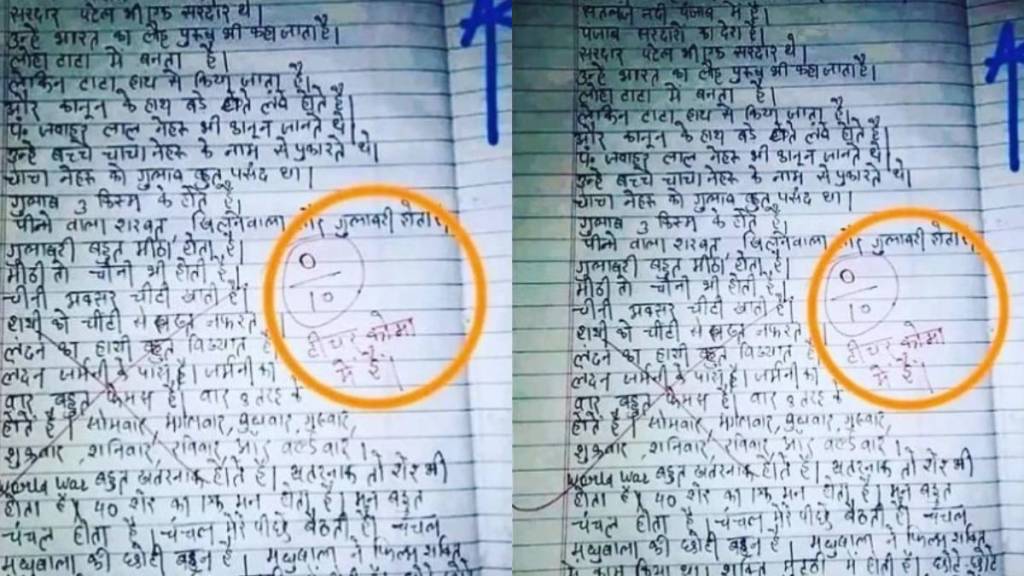 सरदार पटेल भी एक सरदार थे।
उन्हे भारत का लौह पुरुष भी कहा जाता है।
लोहा टाटा मे बनता है।
लेकिन टाटा हाथ से किया जाता है।
और कानून के हाथ बडे होते लंबे होते है।
पं. जवाहर लाल नेहरू भी कानून जानते थे।
उन्हे बच्चे चाचा नेहरू के नाम से पुकारते थे।
चाचा नेहरू को गुलाब बहुत पसंद था।
गुलाब 3 किस्म के होते है।
पीने वाला शरबत, गुलाबरी होता।
गुलाबरी बहुत मीठा होता है।
मीठी तो चीनी भी होती है।
चीनी अक्सर चींटी खाती है।
हाथी को चींटी से सख्त नफरत
लंदन का हाथी बहुत विख्यात है
लंदन जर्मनी के पास है। जर्मनी का
वार बहुत फेमस है। वार 8 तरह के
होते है। सोमवार, मंगलवार, बुधवार, गुरुवार,
शुक्रवार, शनिवार, रविवार, और वर्ल्डवार।
world war बहुत खतरनाक होते है। खतरनाक तो शेर भी
होता है। 40 शेर का एक मन होता है। मन बहुत
चंचल होता है। चंचल मेरे पीछे बैठती है। चंचल
मधुबाला की छोटी बहन है। मधुबाला ने फिल्म शक्ति
0
10
टीचर कोमा
में है।
सतलुज नदी पंजाब मे है।
पंजाब सरदारो का देश है।
सरदार पटेल भी एक सरदार थे।
उन्हे भारत का लौह पुरुष भी कहा जाता है।
लोहा टाटा मे बनता है।
लेकिन टाटा हाथ से किया जाता है।
और कानून के हाथ बडे होते लंबे होते है।
पं. जवाहर लाल नेहरू भी कानून जानते थे।
उन्हे बच्चे चाचा नेहरू के नाम से पुकारते थे।
चाचा नेहरू को गुलाब बहुत पसंद था।
गुलाब 3 किस्म के होते है।
पीने वाला शरबत, गुलाबरी होता।
गुलाबरी बहुत मीठा होता है।
मीठी तो चीनी भी होती है।
चीनी अक्सर चींटी खाती है।
हाथी को चींटी से सख्त नफरत
लंदन का हाथी बहुत विख्यात है
लंदन जर्मनी के पास है। जर्मनी का
वार बहुत फेमस है। वार 8 तरह के
होते है। सोमवार, मंगलवार, बुधवार, गुरुवार,
शुक्रवार, शनिवार, रविवार, और वर्ल्डवार।
world war बहुत खतरनाक होते है। खतरनाक तो शेर भी
होता है। 40 शेर का एक मन होता है। मन बहुत
चंचल होता है। चंचल मेरे पीछे बैठती है। चंचल
मधुबाला की छोटी बहन है। मधुबाला ने फिल्म शक्ति
मे काम किया था। शक्ति मुट्ठी में होती है।
0
10
टीचर कोमा
में है।